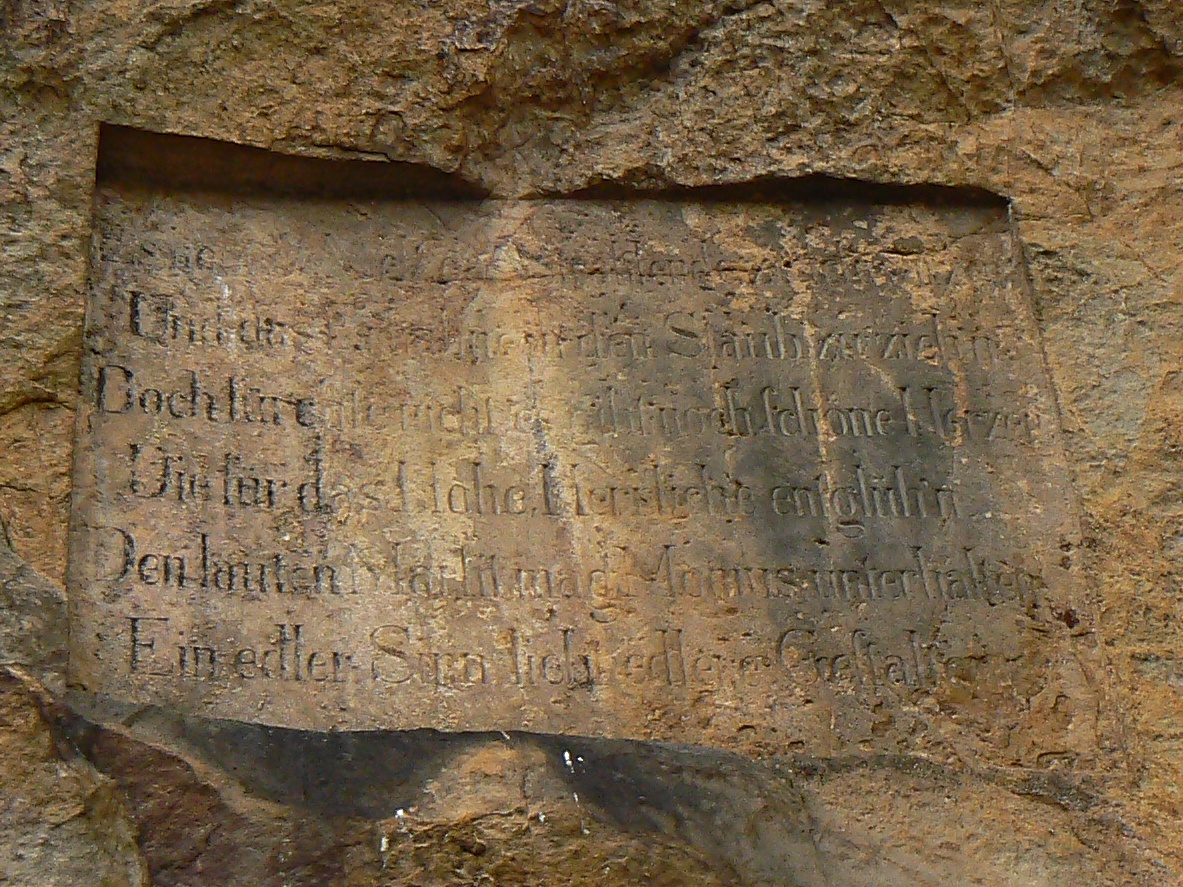 Es
Und das in den Staub zu ziehn
Doch fürchte nicht es giebt noch ſchöne Herzen
Die für das Hohe, Herrliche entglüh'n
Den lauten Markt mag Momus unterhalten
Ein edler Sinn liebt edlere Geſtalten